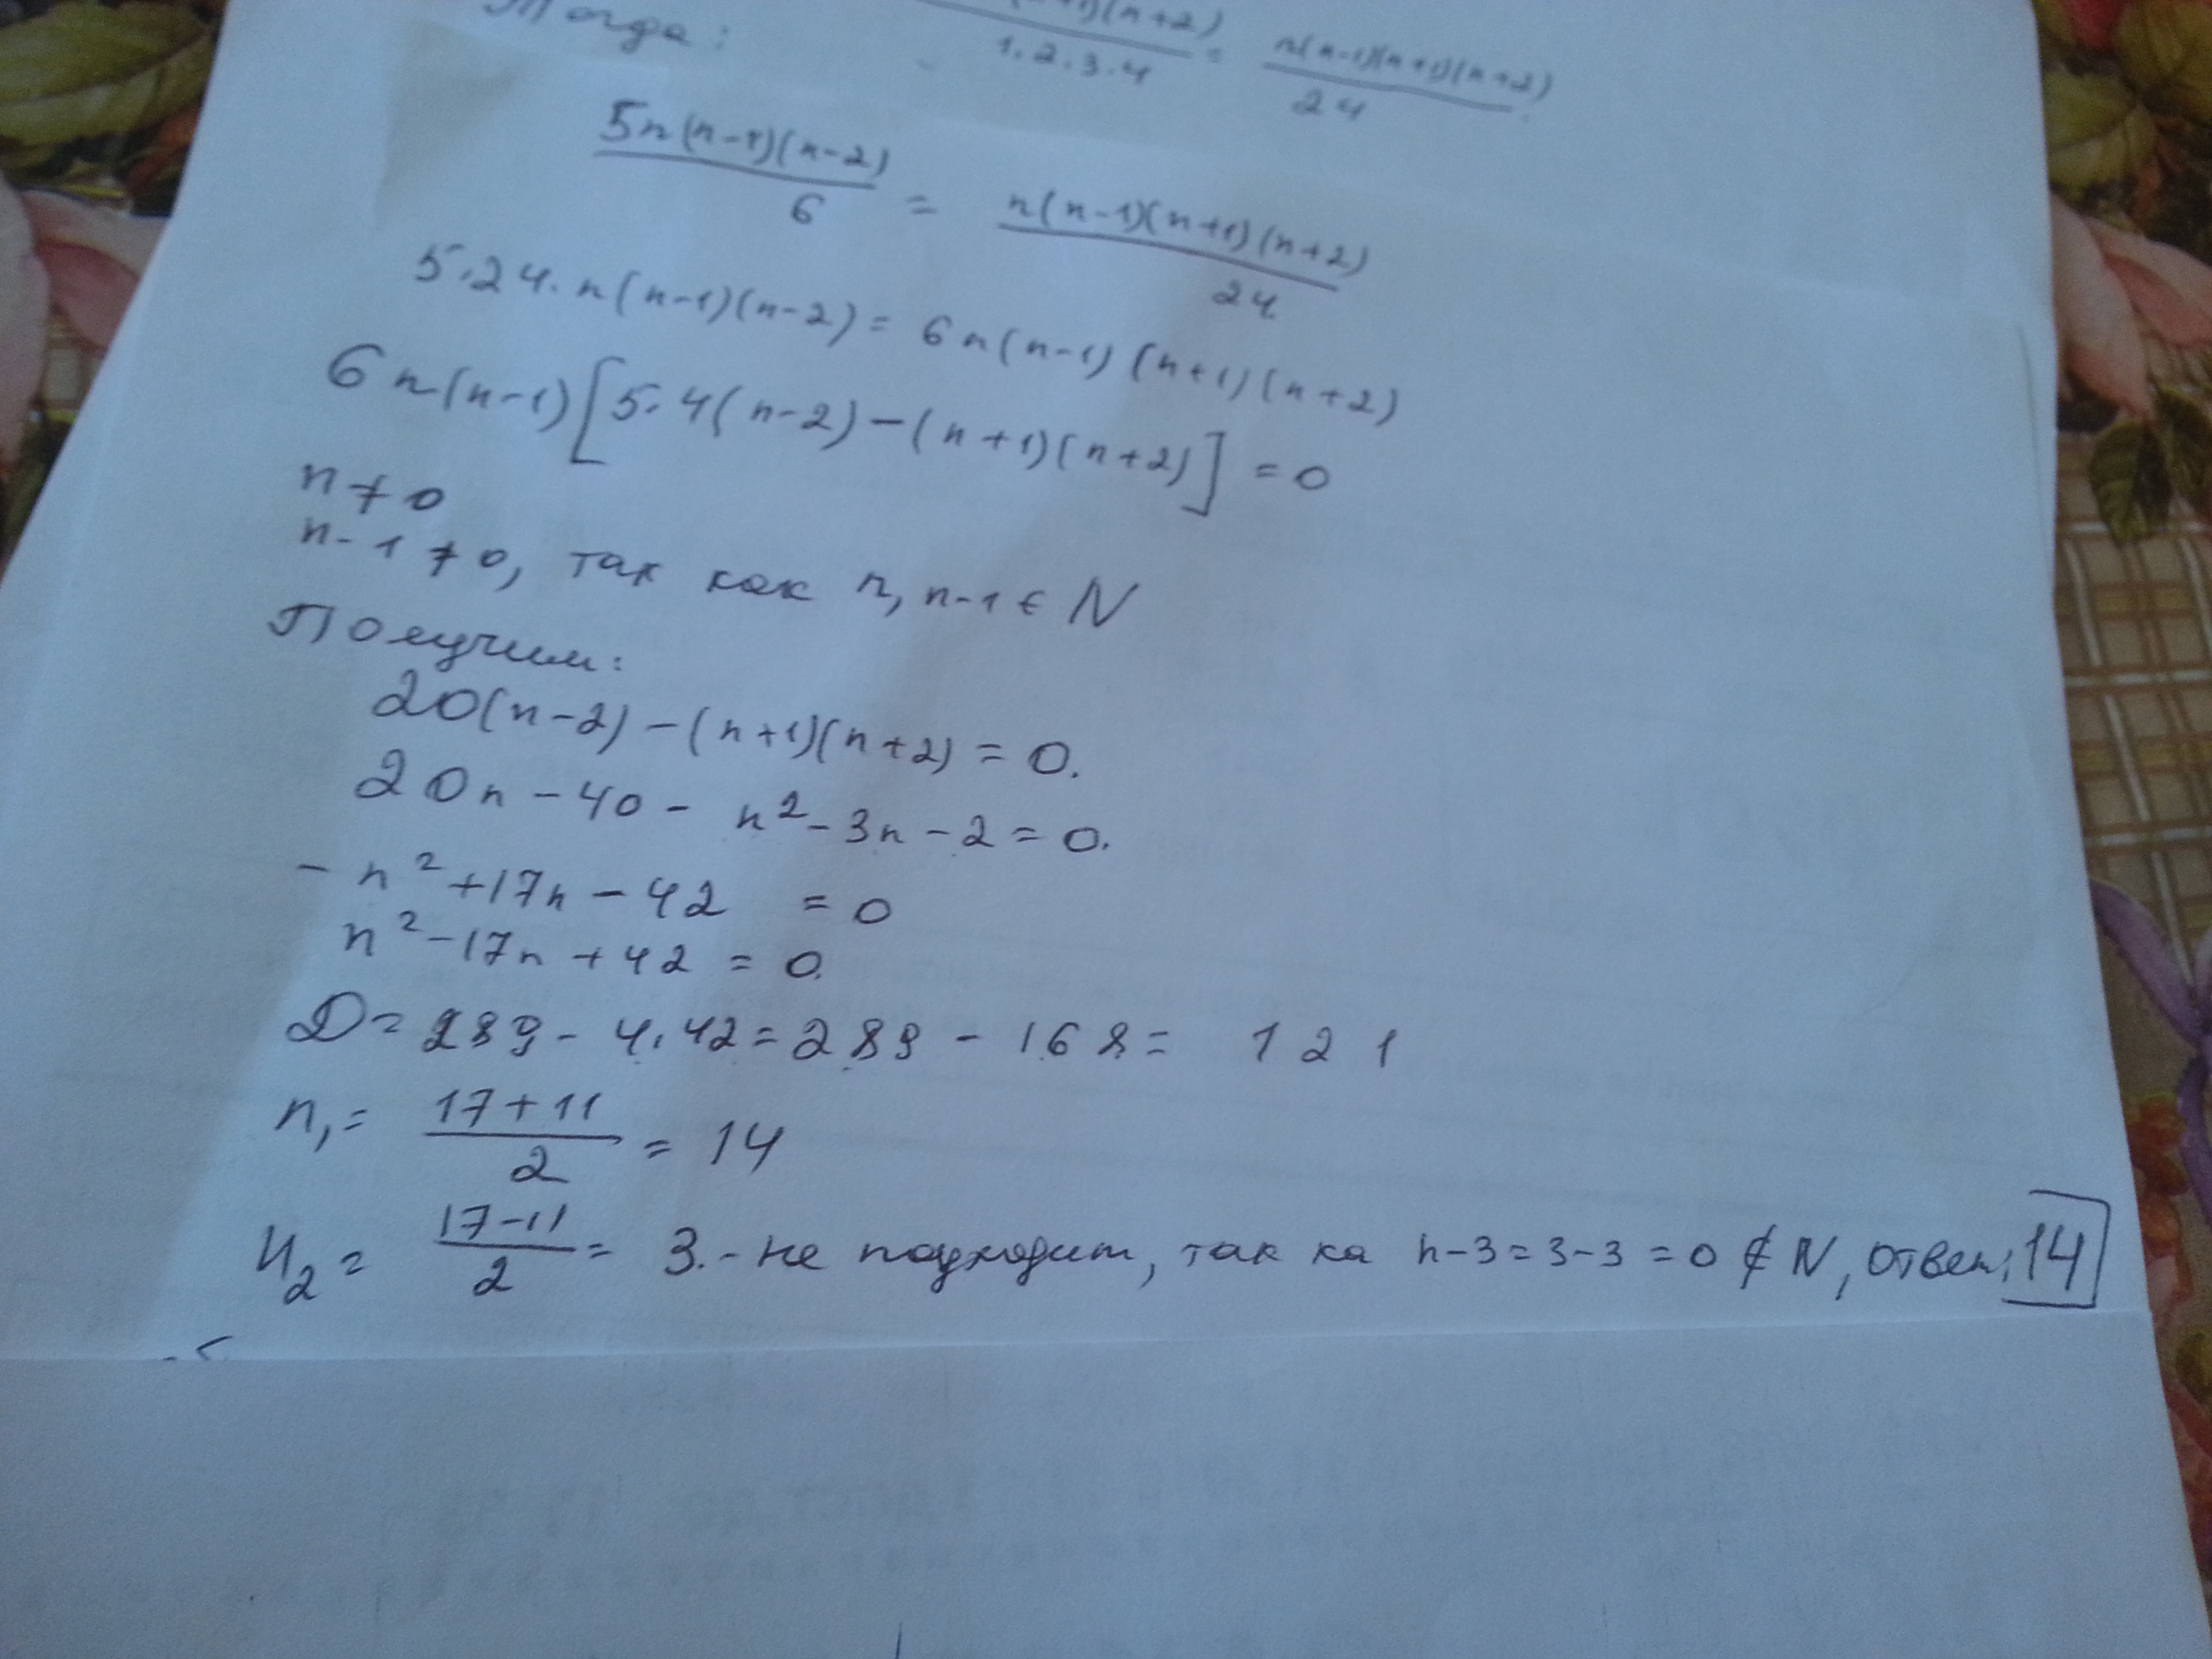 Тогда:
+1)(n+2) / 1.2.3.4 = n(n-1)(n+1)(n+2) / 24
5n(n-1)(n-2) / 6 = n(n-1)(n+1)(n+2) / 24
5.24.n(n-1)(n-2) = 6n(n-1)(n+1)(n+2)
6n(n-1)[5.4(n-2)-(n+1)(n+2)] = 0
n≠0
n-1≠0, так как n, n-1 ∈ N
Получим:
20(n-2)-(n+1)(n+2) = 0.
20n-40-n²-3n-2 = 0.
-n²+17n-42 = 0
n²-17n+42 = 0.
D = 289-4.42 = 289-168 = 121
n₁ = 17+11 / 2 = 14
n₂ = 17-11 / 2 = 3.-не подходит, так ка n-3=3-3=0 ∉ N, ответ: 14